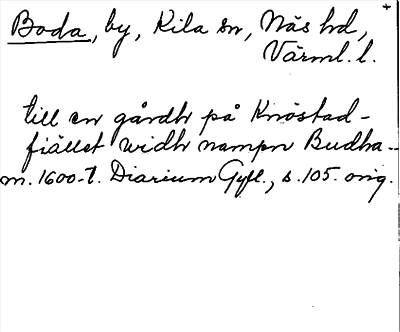 Boda, by, Kila sn, Näs hd,
Värml. l.
till en gårdh på Knöstad-
fiället widh nampn Budha_
m. 1600-t. Diarium Gyll., s. 105. orig.